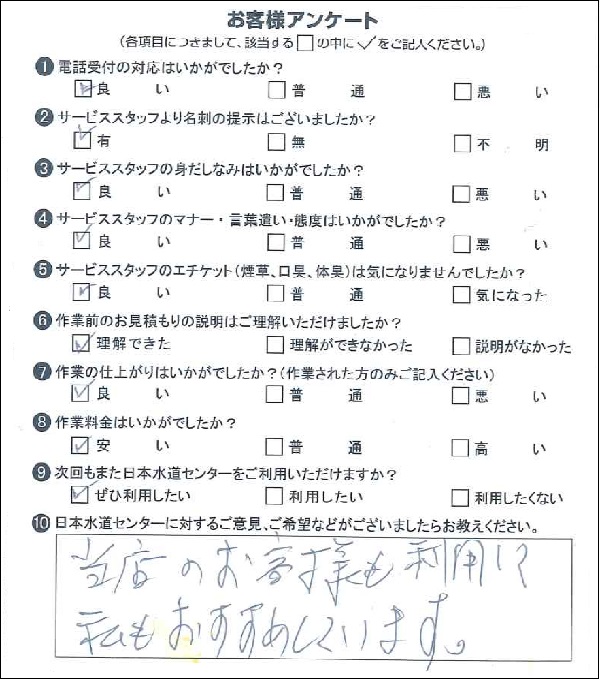 お客様アンケート
(各項目につきまして、該当する□の中に✓をご記入ください。)
❶ 電話受付の対応はいかがでしたか?
☑良　い　□普　通　□悪　い
❷ サービススタッフより名刺の提示はございましたか?
☑有　□無　□不　明
❸ サービススタッフの身だしなみはいかがでしたか?
☑良　い　□普　通　□悪　い
❹ サービススタッフのマナー・言葉遣い・態度はいかがでしたか?
☑良　い　□普　通　□悪　い
❺ サービススタッフのエチケット(煙草、口臭、体臭)は気になりませんでしたか?
☑良　い　□普　通　□気になった
❻ 作業前のお見積もりの説明はご理解いただけましたか?
☑理解できた　□理解ができなかった　□説明がなかった
❼ 作業の仕上がりはいかがでしたか?(作業された方のみご記入ください)
☑良　い　□普　通　□悪　い
❽ 作業料金はいかがでしたか?
☑安　い　□普　通　□高　い
❾ 次回もまた日本水道センターをご利用いただけますか?
☑ぜひ利用したい　□利用したい　□利用したくない
❿ 日本水道センターに対するご意見、ご希望などがございましたらお教えください。
当店のお客様も利用して
私もおすすめしています。